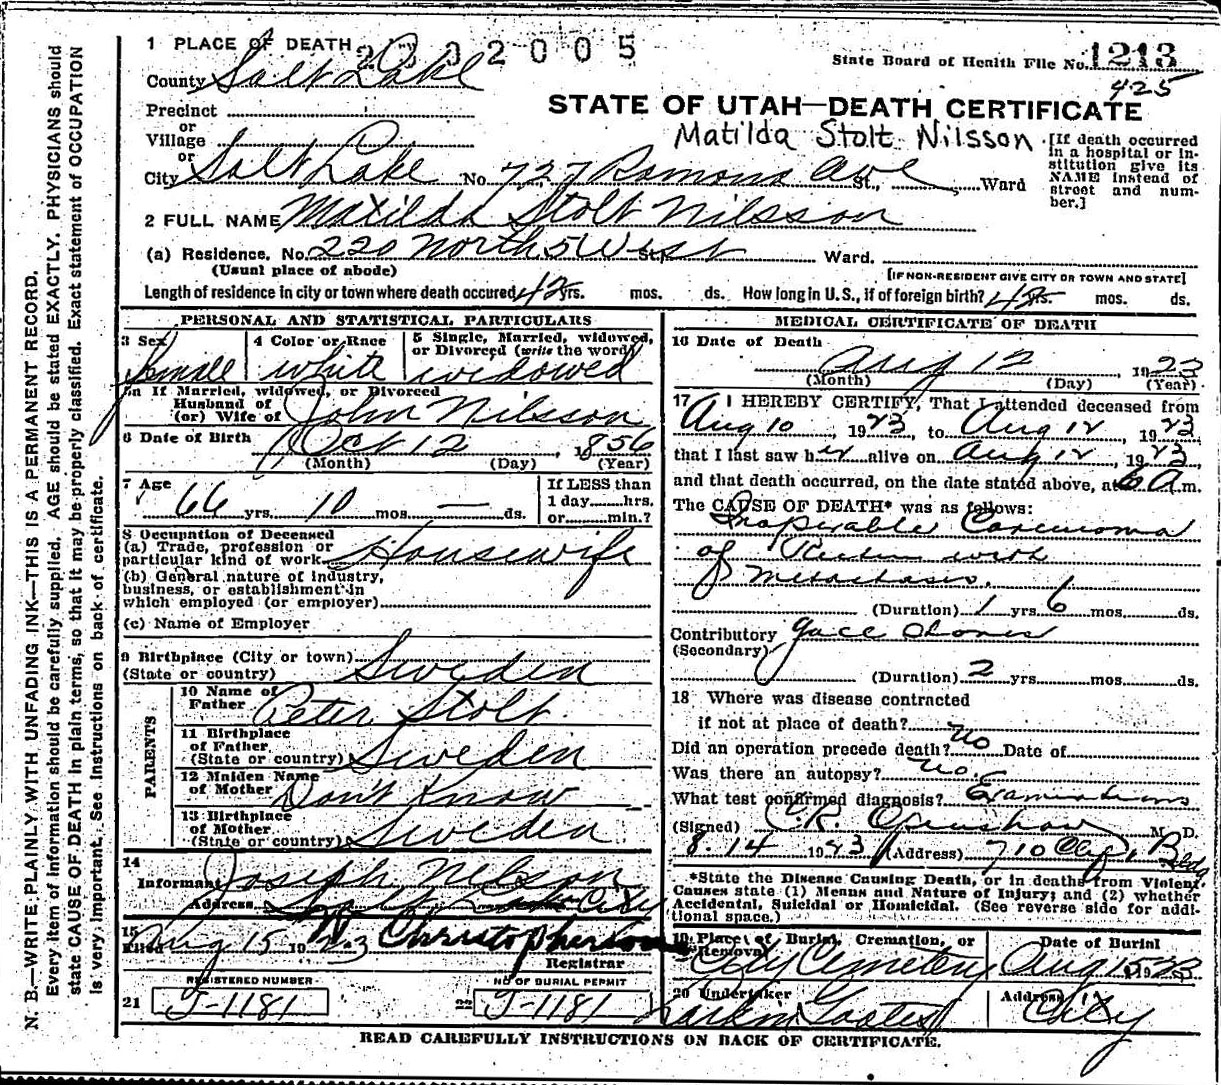 1 PLACE OF DEARTH 2302005
State Board of Health File No. 1213
County Salt Lake
425
STATE OF UTAH—DEATH CERTIFICATE
Precinct
or
Village
Matilda Stolt Nilsson
[If death occurred in a hospital or institution give its NAME instead of street and number.]
or
City Salt Lake No. 727 Ramona Ave St., Ward
2 FULL NAME Matilda Stolt Nilsson
(a) Residence. No. 220 North 5 West St., Ward.
(Usual place of abode) [IF NON-RESIDENT GIVE CITY OR TOWN AND STATE]
Length of residence in city or town where death occured 42 yrs. mos. ds. How long in U.S., if of foreign birth? 42 yrs. mos. ds.
PERSONAL AND STATISTICAL PARTICULARS
3 Sex female
4 Color or Race white
5 Single, Married, widowed, or Divorced (write the word) widowed
5a If Married, widowed, or Divorced
Husband of
(or) Wife of John Nilsson
6 Date of Birth Oct 12, 1856
(Month) (Day) (Year)
7 Age 66 yrs. 10 mos. — ds.
If LESS than
1 day....hrs.
or....min.?
8 Occupation of Deceased
(a) Trade, profession or
particular kind of work Housewife
(b) General nature of industry,
business, or establishment in
which employed (or employer)
(c) Name of Employer
9 Birthplace (City or town)
(State or country) Sweden
PARENTS
10 Name of
Father Peter Stolt
11 Birthplace
of Father
(State or country) Sweden
12 Maiden Name
of Mother Don't Know
13 Birthplace
of Mother
(State or country) Sweden
14
Informant Joseph Nelson
Address Salt Lake City
15
Filed Aug 15 1923 Christopherson
Registrar
REGISTERED NUMBER
21 J-1181
NO OF BURIAL PERMIT
22 J-1181
MEDICAL CERTIFICATE OF DEATH
16 Date of Death
Aug 12 1923
(Month) (Day) (Year)
17 I HEREBY CERTIFY, That I attended deceased from
Aug 10, 1923, to Aug 12, 1923,
that I last saw her alive on Aug 12, 1923,
and that death occurred, on the date stated above, at 6 A.m.
The CAUSE OF DEATH* was as follows:
Inoperable Carcinoma
of Rectum with
metastases.
(Duration) 1 yrs. 6 mos. ds.
Contributory Gall stones
(Secondary)
(Duration) 2 yrs. mos. ds.
18 Where was disease contracted
if not at place of death?
Did an operation precede death? no Date of
Was there an autopsy? no.
What test confirmed diagnosis? Examinations
(Signed) C.R. Openshaw M. D.
8-14 1923 (Address) 710 Bldg
*State the Disease Causing Death, or in deaths from Violent Causes state (1) Means and Nature of Injury; and (2) whether Accidental, Suicidal or Homicidal. (See reverse side for additional space.)
19 Place of Burial, Cremation, or
Removal City Cemetery
Date of Burial
Aug 15 1923
20 Undertaker
Address City
READ CAREFULLY INSTRUCTIONS ON BACK OF CERTIFICATE.
N. B.—WRITE PLAINLY WITH UNFADING INK—THIS IS A PERMANENT RECORD.
Every item of information should be carefully supplied. AGE should be stated EXACTLY. PHYSICIANS should
state CAUSE OF DEATH in plain terms, so that it may be properly classified. Exact statement of OCCUPATION
is very important. See instructions on back of certificate.